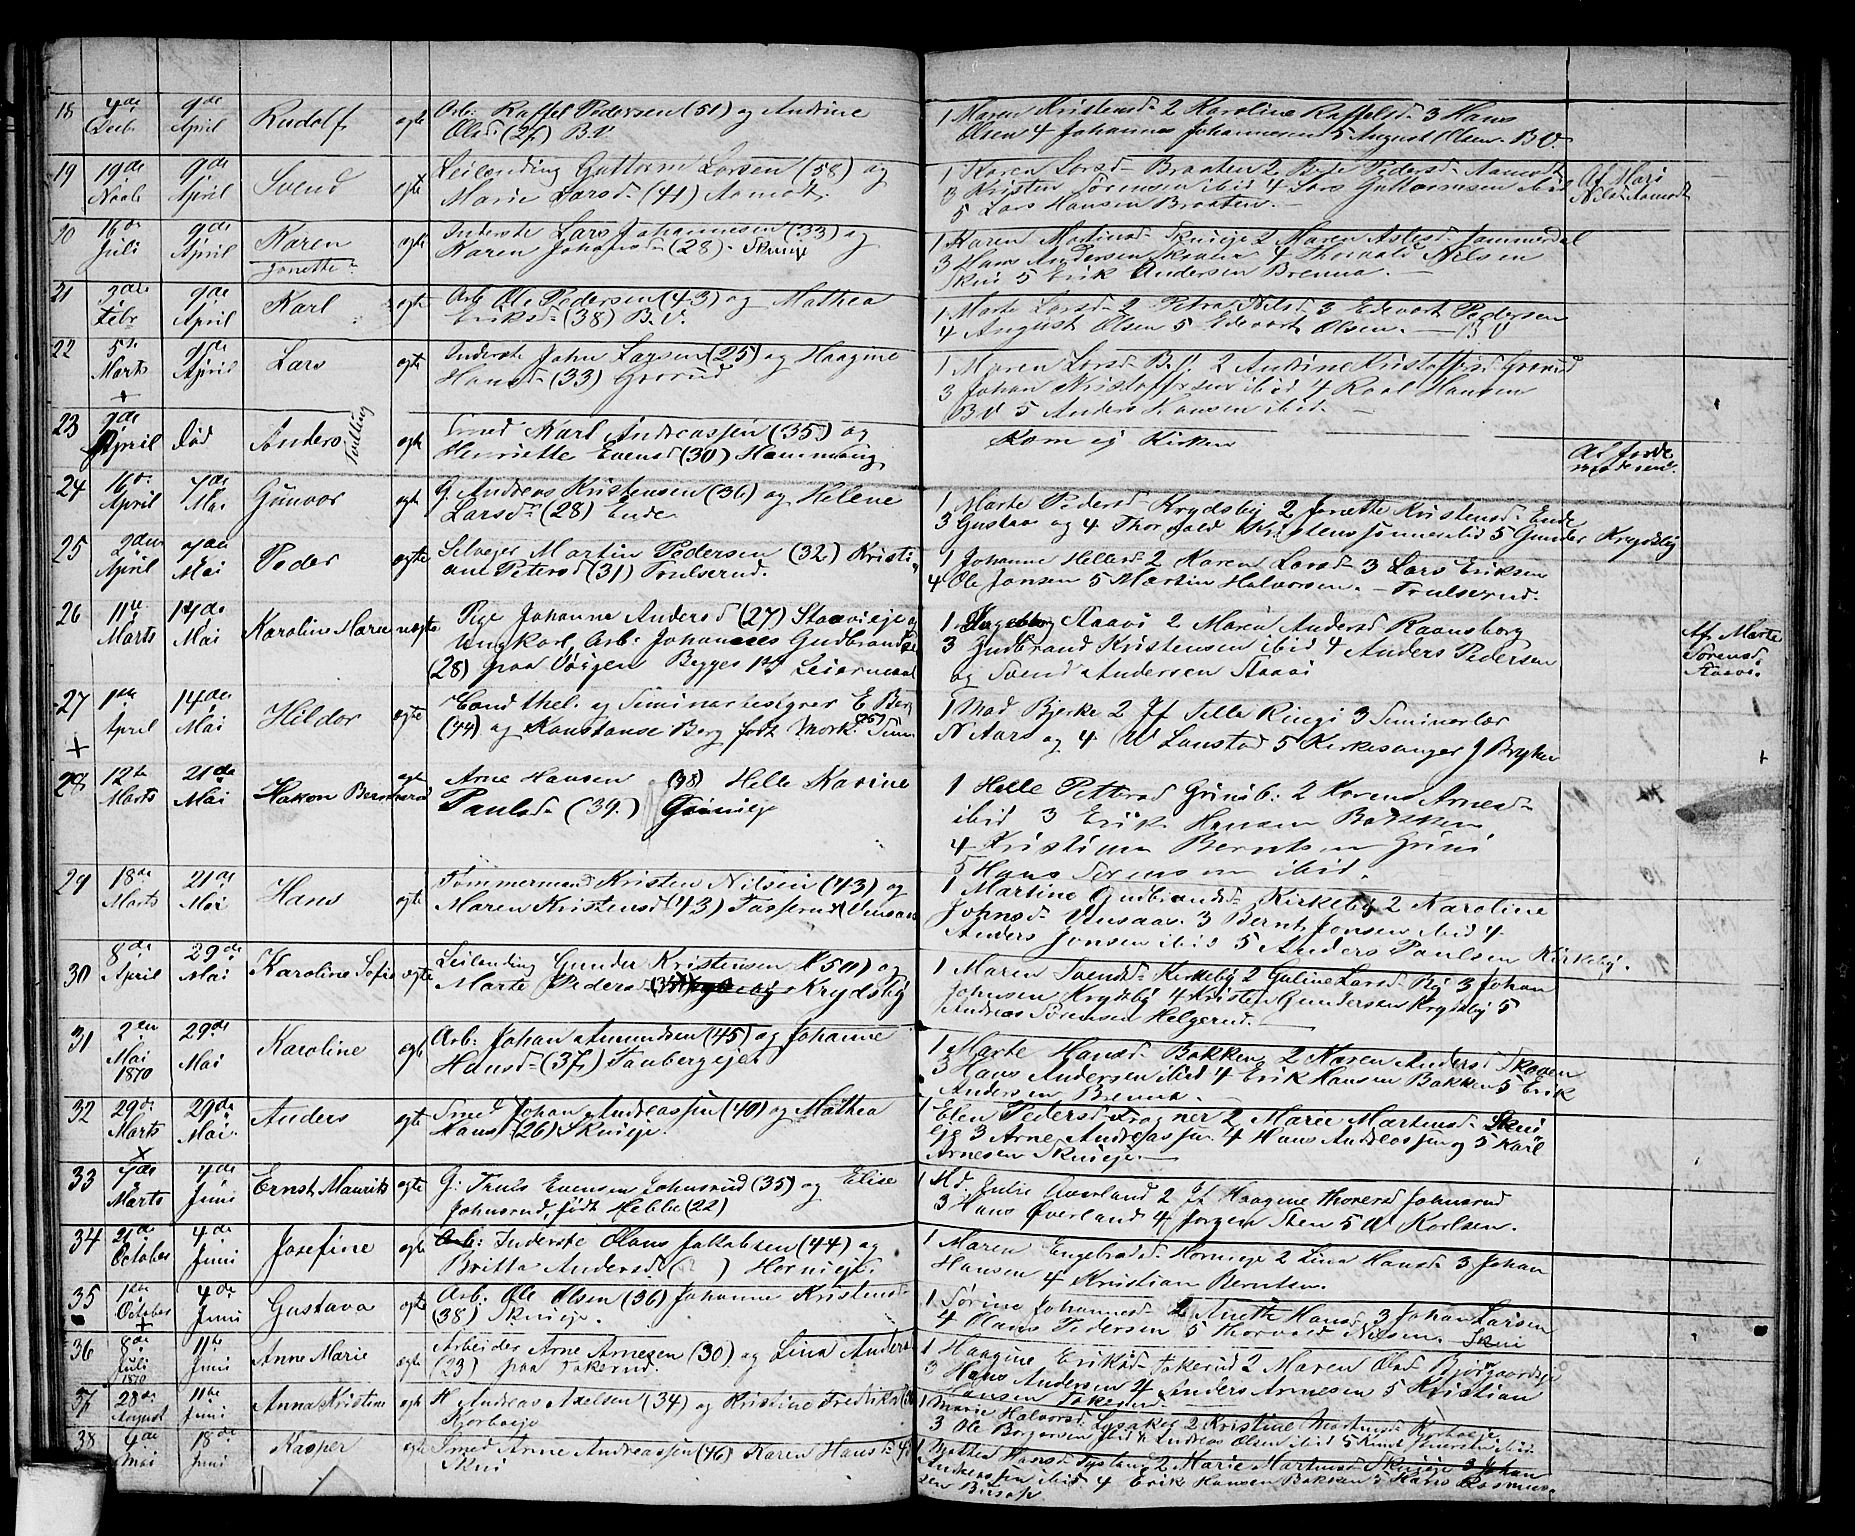 18 4de Decb 9de April Rudolf ægte Arb: Raffel Pedersen (51) og Andrine
Olsd (27) B.V.
1 Maren Kristensd 2 Karoline Raffelsd 3 Hans
Olsen 4 Johannes Johannesen 5 August Olsen B.V.
19 19de Novb 9de April Svend ægte Leilending Guttorm Larsen (58) og
Marie Larsd (41) Aamodt
1 Karen Larsd Braaten 2 Pedersd Aamodt
3 Kristen Sørensen ibid 4 Lars Guttormsen ibid
5 Lars Hansen Braaten.
Af Mari
Nilsd Aamodt
20 16de Juli 9de April Karen
Jonette
ægte Inderste Lars Johannesen (33) og
Karen Johansd (28) Skuieje
1 Karen Martinsd Skuieje 2 Maren Jammerdal
3 Hans Andersen 4 Thorvald Nilsen
Skui 5 Erik Andersen Brenna.
21 Febr 9de April Karl ægte Arb Ole Pedersen (43) og Mathea
Eriksd (38) B.V.
1 Marte Larsd 2 Petra Nilsd 3 Edevart Pedersen
4 August Olsen 5 Edevart Olsen. B V
22 5te Marts 9de April Lars ægte Inderste John Larsen (25) og Haagine
Hansd (33) Grorud
1 Maren Larsd B.V. 2 Andrine Kristoffersd Grorud
3 Johan Kristoffersen ibid 4 Hansen
BV 5 Anders Hansen ibid.
23 9de April død Anders Tvilling ægte Smed Karl Andreassen (35) og
Henriette Evensd (30) Hammang
Kom ej Kirken
Af Jorde
moderen
24 16de April 7de Mai Gunvor ægte G. Andreas Kristensen (36) og Helene
Larsd (28) Ende
1 Marte Pedersd Krydsby 2 Jonette Kristensd Ende
3 Gustav og 4 Thorvald Kristensønner ibid 5 Gunder Krydsby
25 2den April 7de Mai Peder ægte Selveger Martin Pedersen (32) Kristi-
ane Petersd (31) Trulserud.
1 Johanne Hellesd 2 Karen Larsd 3 Lars Eriksen
4 Ole Jonsen 5 Martin Halvorsen. Trulserud.
26 11te Marts 14de Mai Karoline Marie uægte Pige Johanne Andersd (27) Staavieje og
Ungkarl, Arb: Johannes Gudbrandsen
(28) paa Begges 1ste Leiermaal
1 Ingeborg Staavi 2 Maren Andersd Ramsborg
3 Gudbrand Kristensen ibid 4 Anders Pedersen
og Svend Andersen Staavi
Af Marte
Sørensd
Staavi.
27 1ste April 14de Mai Hildor ægte Cand thel. og Seminarbestyrer E Berg
(44) og Konstanse Berg født Mork (25)
1 Mad Bjerke 2 Jf Jella Ringi 3 Seminarlær
N Aars og 4 W Lanstad 5 Kirkesanger J Bryhn
28 12te Marts 21de Mai Hakon Berntinius ægte Arne Hansen (38) Helle Karine
Paulsd (39) Grinieje
1 Helle Pettersd Grinib: 2 Karen Arnesd
ibid 3 Erik Hansen Bakken
4 Kristian Berntsen Grini
5 Hans Sørensen ibid.
29 18de Marts 21de Mai Hans ægte Tømmermand Kristen Nilsen (43) og
Maren Kristensd (43) Tasserud
1 Martine Gudbrandsd Kirkeby 2 Karoline
Johnsd 3 Bernt Jonsen ibid 4
Anders Jonsen ibid 5 Anders Paulsen Kirkeby.
30 8de April 29de Mai Karoline Sofie ægte Leilending Gunder Kristensen (50) og
Marte Pedersd (35) Krydsby
1 Maren Svendsd Kirkeby 2 Guline Larsd By 3 Johan
Johnsen Krydsby 4 Kristen Gundersen Krydsby 5
Andreas Sørensen Helgerud.
31 2den Mai 1870 29de Mai Karoline ægte Arb: Johan Amundsen (45) og Johanne
Hansd (37) Tanbergejet
1 Marte Hansd Bakken 2 Karen Andersd Skoven
3 Hans Andersen ibid 4 Erik Hansen Bakken 5 Erik
Andersen Brenna.
32 29de Marts 29de Mai Anders ægte Smed Johan Andreassen (40) og Mathea
Hansd (26) Skuieje.
1 Elen Pedersd 2 Marie Martinsd Skui
eje 3 Arne Andreassen 4 Hans Andreassen og 5 Karl
Arnesen Skuieje
33 7de Marts 4de Juni Ernst Maurits ægte G: Truls Evensen Johnsrud (35) og Elise
Johnsrud, født Hebbe (22)
1 Md Julie Øverland 2 Jf Haagine Thoresd Johnsrud
3 Hans Øverland 4 Jørgen Sten 5 Karlsen.
34 21de October 4de Juni Josefine ægte Arb: Inderste Olaus Jakobsen (44) og
Britta Andersd ( ) Hornieje.
1 Maren Engebretsd Hornieje 2 Lina Hansd 3 Johan
Hansen 4 Kristian Berntsen.
35 1ste October 4de Juni Gustava ægte Arb. Ole Olsen (36) Johanne Kristensd
(38) Skuieje.
1 Sørine Johannesd 2 Aneth Hansd 3 Johan Larsen
4 Olaus Pedersen 5 Thorvald Nilsen. Skui
36 8de Juli 1870 11te Juni Anne Marie ægte Arbeider Arne Arnesen (30) og Lina Andersd
(23) paa Tokerud.
1 Haagine Eriksd Tokerud 2 Maren Olsd Bjørgaardseje
3 Hans Andersen 4 Anders Arnesen 5 Kristian
Hansen Tokerud.
37 28de August 11te Juni Anna Kristine ægte H Andreas Axelsen (34) og Kristine Fredriksd
Kjørboeje
1 Marie Halvorsd Lysaker 2 Kristine Martinsd Kjørboeje
3 Ole Borgersen ibid 4 Andreas Olsen ibid 5 Knut ibid.
38 4de Mai 18de Juni Kasper ægte Smed Arne Andreassen (46) Karen Hansd
Skui
1 Mathea Hansd 2 Marie Martinsd Skuieje 3 Johan
Andreassen ibid. 4 Erik Hansen Bakken 5 Hans Rasmus-
sen